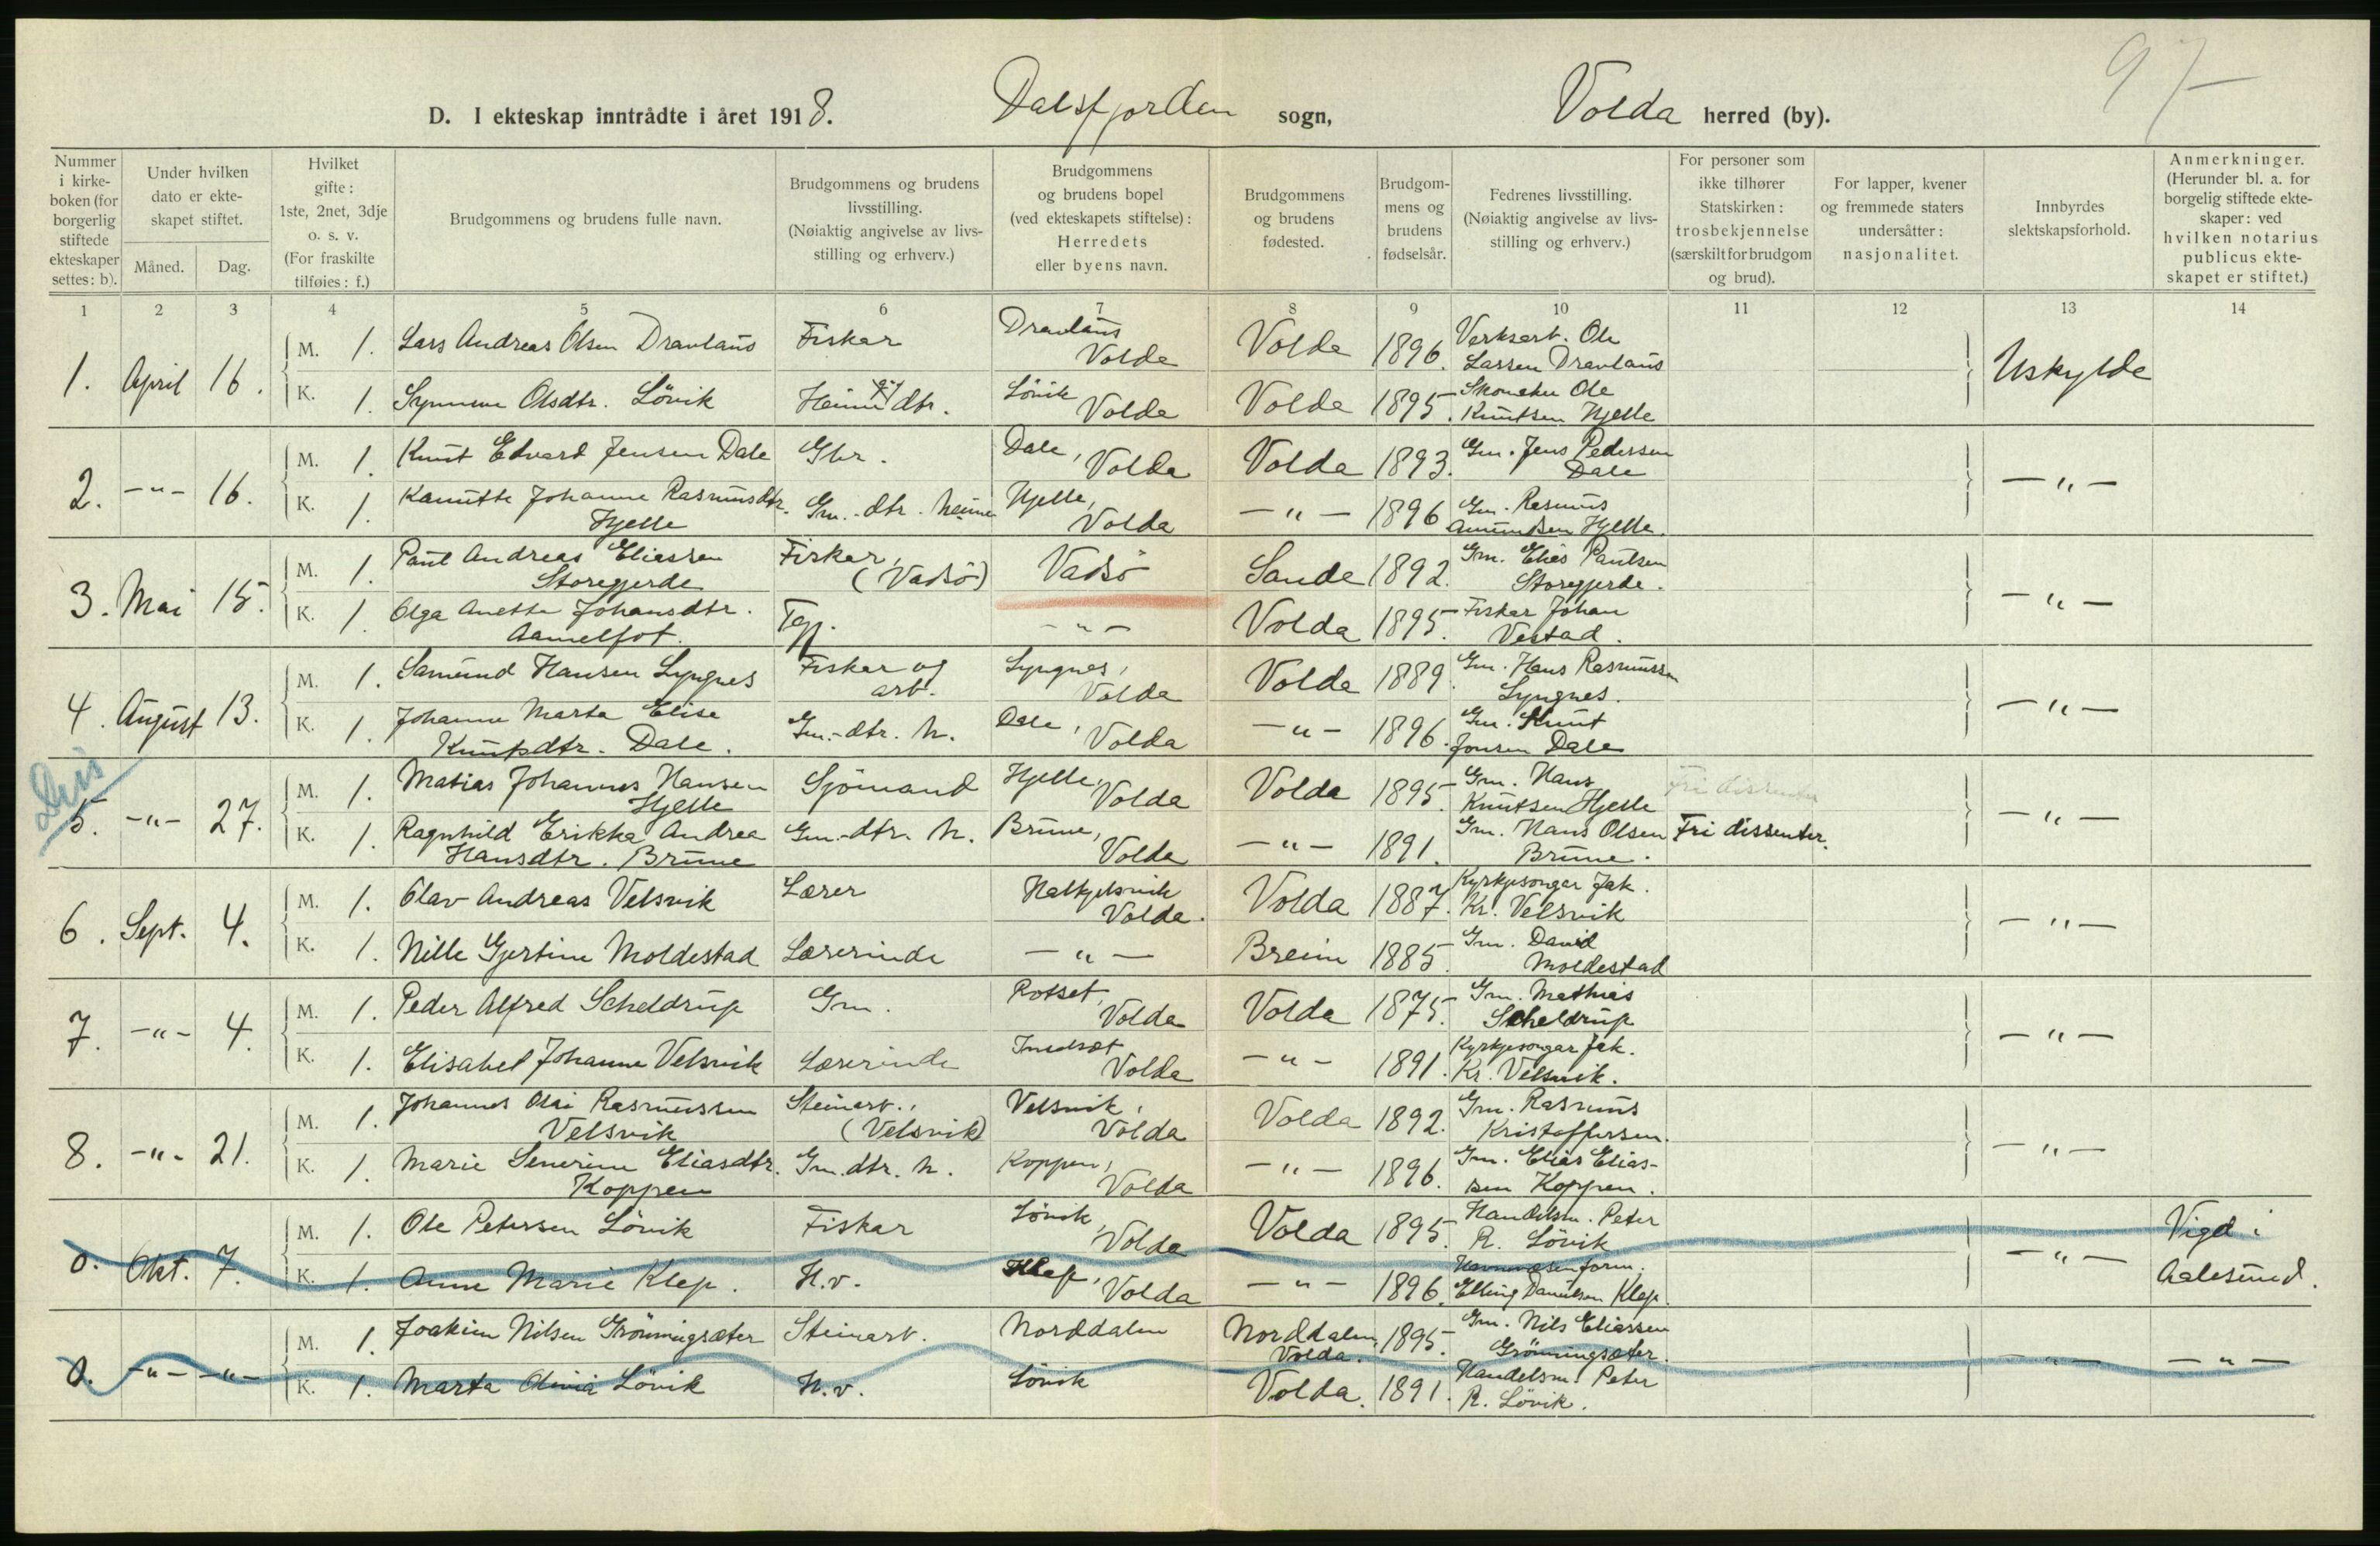 97
D. I ekteskap inntrådte i året 1918. Dalsfjorden sogn, Volda herred (by).
Nummer i kirke-boken (for borgerlig stiftede ekteskaper settes: b).
Under hvilken dato er ekte-skapet stiftet.
Måned. Dag.
Hvilket gifte: 1ste, 2net, 3dje o. s. v. (For fraskilte tilføies: f.)
Brudgommens og brudens fulle navn.
Brudgommens og brudens livsstilling. (Nøiaktig angivelse av livs-stilling og erhverv.)
Brudgommens og brudens bopel (ved ekteskapets stiftelse): Herredets eller byens navn.
Brudgommens og brudens fødested.
Brudgom-mens og brudens fødselsår.
Fedrenes livsstilling. (Nøiaktig angivelse av livs-stilling og erhverv.)
For personer som ikke tilhører Statskirken: trosbekjennelse (særskilt for brudgom og brud).
For lapper, kvener og fremmede staters undersåtter: nasjonalitet.
Innbyrdes slektskapsforhold.
Anmerkninger. (Herunder bl. a. for borgelig stiftede ekte-skaper: ved hvilken notarius publicus ekte-skapet er stiftet.)
1 2 3 4 5 6 7 8 9 10 11 12 13 14
1. April 16. M. 1. Lars Andreas Olsen Dravlaus Fiskar Dravlaus Volda Volda 1896. Verksarb. Ole Larsen Dravlaus Uskylde
K. 1. Synneve Olsdtr. Lövik Heime dtr. Lövik Volda Volda 1895. Ole Knutsen Hjelle
2. -"- 16. M. 1. Knut Edvard Jensen Dale Gbr. Dale, Volda Volda 1893. Gm. Jens Pedersen Dale -"-
K. 1. Kanutte Johanne Rasmusdtr. Hjelle Gm.-dtr. heime Hjelle, Volda -"- 1896 Gm. Rasmus Amundsen Hjelle.
3. Mai 15. M. 1. Paul Andreas Eliassen Storegjerde Fiskar, (Vadsö) Vadsö Sande 1892. Gm. Elias Paulsen Storegjerde. -"-
K. 1. Olga Anette Johansdtr. Aamelfot. Tgj. -"- Volda 1895. Fiskar Johan Vestad.
4. August 13. M. 1. Samund Hansen Lyngnes Fiskar og arb. Lyngnes, Volda Volda 1889. Gm. Hans Rasmussen Lyngnes. -"-
K. 1. Johanne Marta Elise Knutsdtr. Dale. Gm.-dtr. h. Dale, Volda -"- 1896. Gm. Knut Jonsen Dale
Diss
5. -"- 27. M. 1. Matias Johannes Hansen Hjelle Sjömand Hjelle, Volda Volda 1895. Gm. Hans Knutsen Hjelle Fri dissenter -"-
K. 1. Ragnhild Erikka Andrea Hansdtr. Brune Gm.-dtr. h. Brune, Volda -"- 1891. Gm. Hans Olsen Brune. Fri dissenter.
6. Sept. 4. M. 1. Olav Andreas Velsvik Lærer Halkjelsvik Volda. Volda 1887. Kyrkjesongar Jak. Kr. Velsvik -"-
K. 1. Nille Gjertine Moldestad Lærerinde -"- Breim 1885. Gm. David Moldestad
7. -"- 4. M. 1. Peder Alfred Scheldrup Gm. Rotset, Volda Volda 1875. Gm. Mathias Scheldrup -"-
K. 1. Elisabet Johanne Velsvik Lærerinde Volda -"- 1891. Kyrkjesongar Jak. Kr. Velsvik.
8. -"- 21. M. 1. Johannes Olai Rasmussen Velsvik Steinarb., (Velsvik) Velsvik, Volda Volda 1892. Gm. Rasmus Kristoffersen. -"-
K. 1. Marie Severine Eliasdtr. Koppen Gm.dtr. h. Koppen, Volda -"- 1896. Gm. Elias Elias-sen Koppen.
0. Okt. 7. M. 1. Ole Petersen Lövik Fiskar Lövik, Volda Volda 1895. Handelsm. Peter R. Lövik -"- Vigd i Aalesund.
K. 1. Anne Marie Klep. H.v. Klep, Volda -"- 1896. Elling Danielsen Klep.
0. -"- -"- M. 1. Joakim Nilsen Grönningsæter Steinarb. Norddalen Norddalen. Volda. 1895. Gm. Nils Eliassen Grönningsæter. -"- -"-
K. 1. Marta Olivia Lövik H.v. Lövik Volda. 1891. Handelsm. Peter R. Lövik.